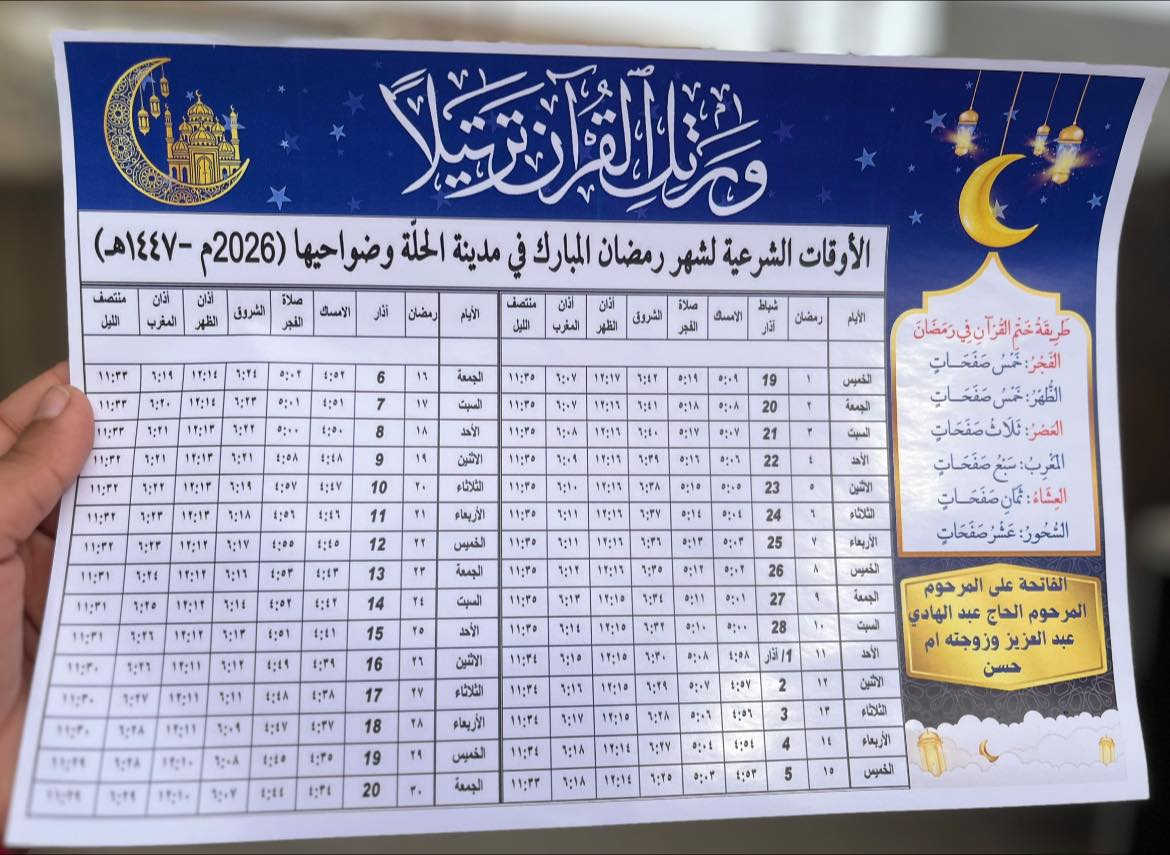 ورتل القرآن ترتيلاً
الأوقات الشرعية لشهر رمضان المبارك في مدينة الحلّة وضواحيها (2026م -١٤٤٧هـ)
الأيام رمضان شباط آذار الامساك صلاة الفجر الشروق أذان الظهر أذان المغرب منتصف الليل
الخميس ١ 19 ٥:٠٩ ٥:١٩ ٦:٤٢ ١٢:١٧ ٦:٠٧ ١١:٣٥
الجمعة ٢ 20 ٥:٠٨ ٥:١٨ ٦:٤١ ١٢:١٦ ٦:٠٧ ١١:٣٥
السبت ٣ 21 ٥:٠٧ ٥:١٧ ٦:٤٠ ١٢:١٦ ٦:٠٨ ١١:٣٥
الأحد ٤ 22 ٥:٠٦ ٥:١٦ ٦:٣٩ ١٢:١٦ ٦:٠٩ ١١:٣٥
الاثنين ٥ 23 ٥:٠٥ ٥:١٥ ٦:٣٨ ١٢:١٦ ٦:١٠ ١١:٣٥
الثلاثاء ٦ 24 ٥:٠٤ ٥:١٤ ٦:٣٧ ١٢:١٦ ٦:١١ ١١:٣٥
الأربعاء ٧ 25 ٥:٠٣ ٥:١٣ ٦:٣٦ ١٢:١٦ ٦:١١ ١١:٣٥
الخميس ٨ 26 ٥:٠٢ ٥:١٢ ٦:٣٥ ١٢:١٦ ٦:١٢ ١١:٣٥
الجمعة ٩ 27 ٥:٠١ ٥:١١ ٦:٣٤ ١٢:١٥ ٦:١٣ ١١:٣٥
السبت ١٠ 28 ٥:٠٠ ٥:١٠ ٦:٣٢ ١٢:١٥ ٦:١٤ ١١:٣٥
الأحد ١١ 1/ آذار ٤:٥٨ ٥:٠٨ ٦:٣٠ ١٢:١٥ ٦:١٥ ١١:٣٤
الاثنين ١٢ 2 ٤:٥٧ ٥:٠٧ ٦:٢٩ ١٢:١٥ ٦:١٦ ١١:٣٤
الثلاثاء ١٣ 3 ٤:٥٦ ٥:٠٦ ٦:٢٨ ١٢:١٥ ٦:١٧ ١١:٣٤
الأربعاء ١٤ 4 ٤:٥٤ ٥:٠٤ ٦:٢٧ ١٢:١٤ ٦:١٨ ١١:٣٤
الخميس ١٥ 5 ٤:٥٣ ٥:٠٣ ٦:٢٥ ١٢:١٤ ٦:١٨ ١١:٣٣
الأيام رمضان آذار الامساك صلاة الفجر الشروق أذان الظهر أذان المغرب منتصف الليل
الجمعة ١٦ 6 ٤:٥٢ ٥:٠٢ ٦:٢٤ ١٢:١٤ ٦:١٩ ١١:٣٣
السبت ١٧ 7 ٤:٥١ ٥:٠١ ٦:٢٣ ١٢:١٤ ٦:٢٠ ١١:٣٣
الأحد ١٨ 8 ٤:٥٠ ٥:٠٠ ٦:٢٢ ١٢:١٣ ٦:٢١ ١١:٣٣
الاثنين ١٩ 9 ٤:٤٨ ٤:٥٨ ٦:٢١ ١٢:١٣ ٦:٢١ ١١:٣٢
الثلاثاء ٢٠ 10 ٤:٤٧ ٤:٥٧ ٦:١٩ ١٢:١٣ ٦:٢٢ ١١:٣٢
الأربعاء ٢١ 11 ٤:٤٦ ٤:٥٦ ٦:١٨ ١٢:١٣ ٦:٢٣ ١١:٣٢
الخميس ٢٢ 12 ٤:٤٥ ٤:٥٥ ٦:١٧ ١٢:١٢ ٦:٢٣ ١١:٣٢
الجمعة ٢٣ 13 ٤:٤٣ ٤:٥٣ ٦:١٦ ١٢:١٢ ٦:٢٤ ١١:٣١
السبت ٢٤ 14 ٤:٤٢ ٤:٥٢ ٦:١٤ ١٢:١٢ ٦:٢٥ ١١:٣١
الأحد ٢٥ 15 ٤:٤١ ٤:٥١ ٦:١٣ ١٢:١٢ ٦:٢٦ ١١:٣١
الاثنين ٢٦ 16 ٤:٣٩ ٤:٤٩ ٦:١٢ ١٢:١١ ٦:٢٦ ١١:٣٠
الثلاثاء ٢٧ 17 ٤:٣٨ ٤:٤٨ ٦:١١ ١٢:١١ ٦:٢٧ ١١:٣٠
الأربعاء ٢٨ 18 ٤:٣٧ ٤:٤٧ ٦:٠٩ ١٢:١١ ٦:٢٨ ١١:٣٠
الخميس ٢٩ 19 ٤:٣٥ ٤:٤٥ ٦:٠٨ ١٢:١٠ ٦:٢٨ ١١:٢٩
الجمعة ٣٠ 20 ٤:٣٤ ٤:٤٤ ٦:٠٧ ١٢:١٠ ٦:٢٩ ١١:٢٩
طَرِيقَةُ خَتْمِ القُرْآنِ فِي رَمَضَانَ
الفَجْرُ: خَمْسُ صَفَحَاتٍ
الظُّهْرُ: خَمْسُ صَفَحَاتٍ
العَصْرُ: ثَلَاثُ صَفَحَاتٍ
المَغْرِبُ: سَبْعُ صَفَحَاتٍ
العِشَاءُ: ثَمَانِ صَفَحَاتٍ
السُّحُورُ: عَشْرُ صَفَحَاتٍ
الفاتحة على المرحوم
المرحوم الحاج عبد الهادي
عبد العزيز وزوجته ام
حسن